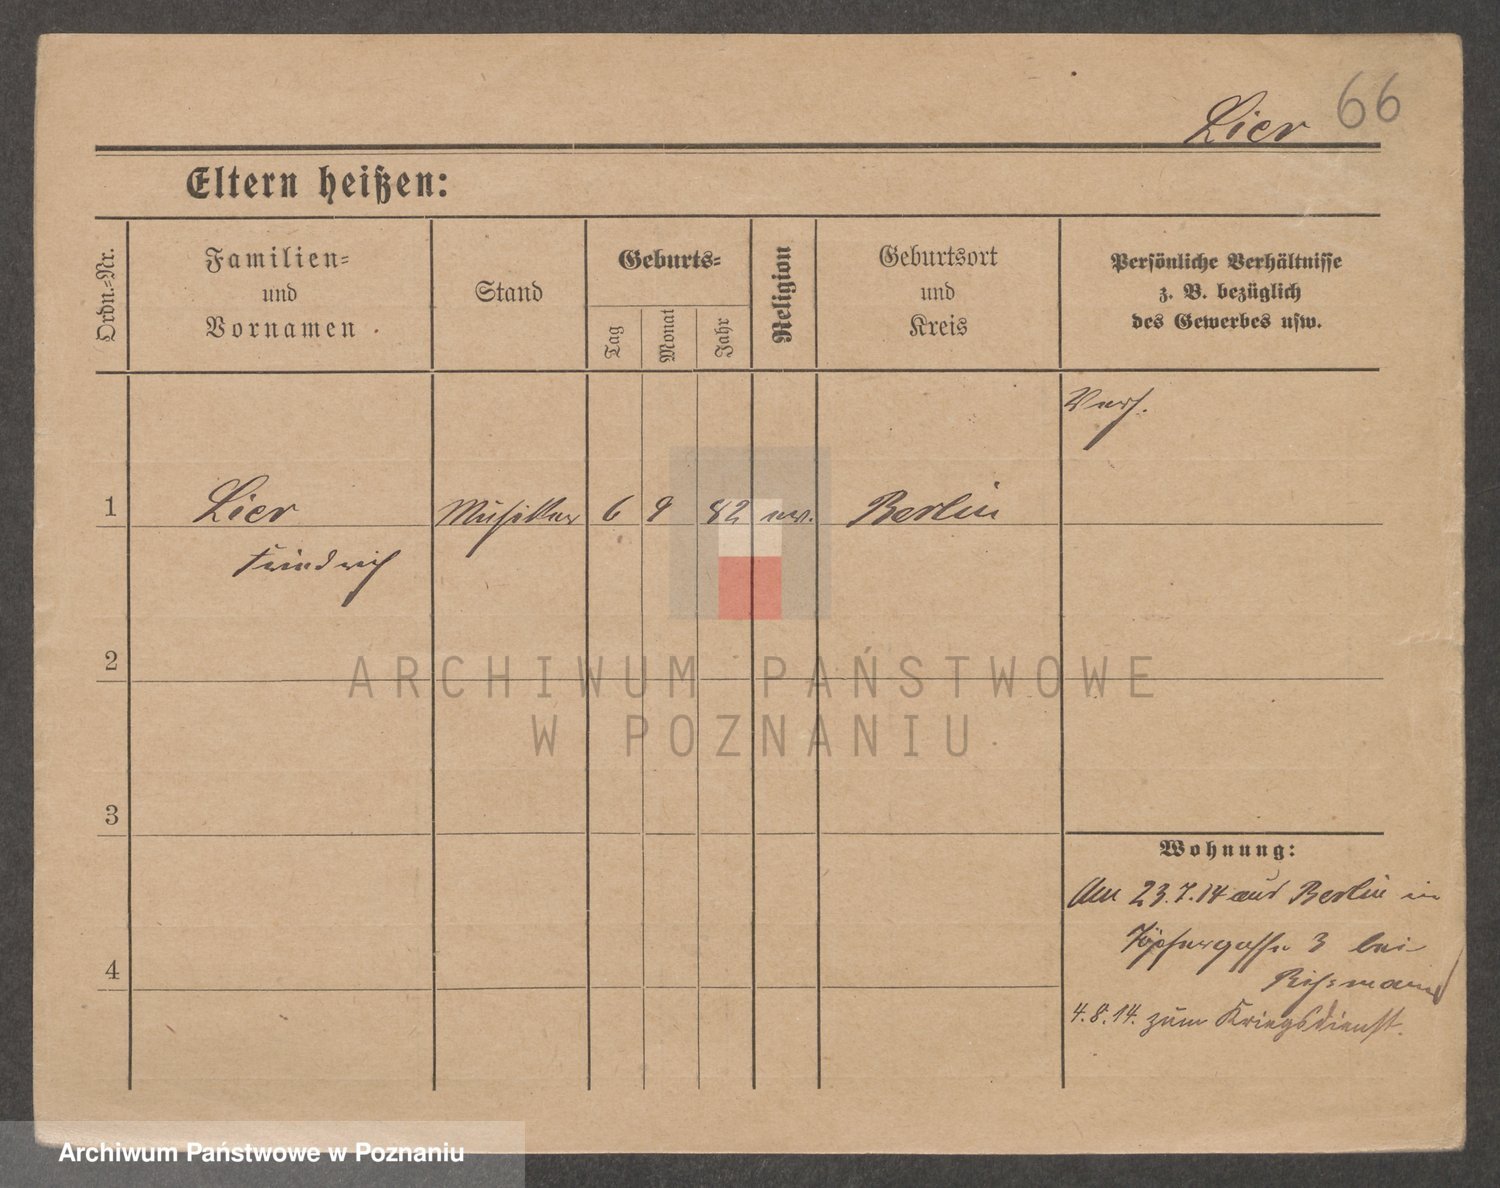 66
Lier
Eltern heißen:
Ordn.=Nr.
Familien=
und
Vornamen
Stand
Geburts=
Tag
Monat
Jahr
Religion
Geburtsort
und
Kreis
Persönliche Verhältnisse
z. B. bezüglich
des Gewerbes usw.
1
Lier
Friedrich
Musiker
6
9
82
ev.
Berlin
2
3
4
Wohnung:
Am 23.7.14 aus Berlin in
Töpfergasse 3 bei
4.8.14. zum Kriegsdienst.
ARCHIWUM PAŃSTWOWE
W POZNANIU
Archiwum Państwowe w Poznaniu